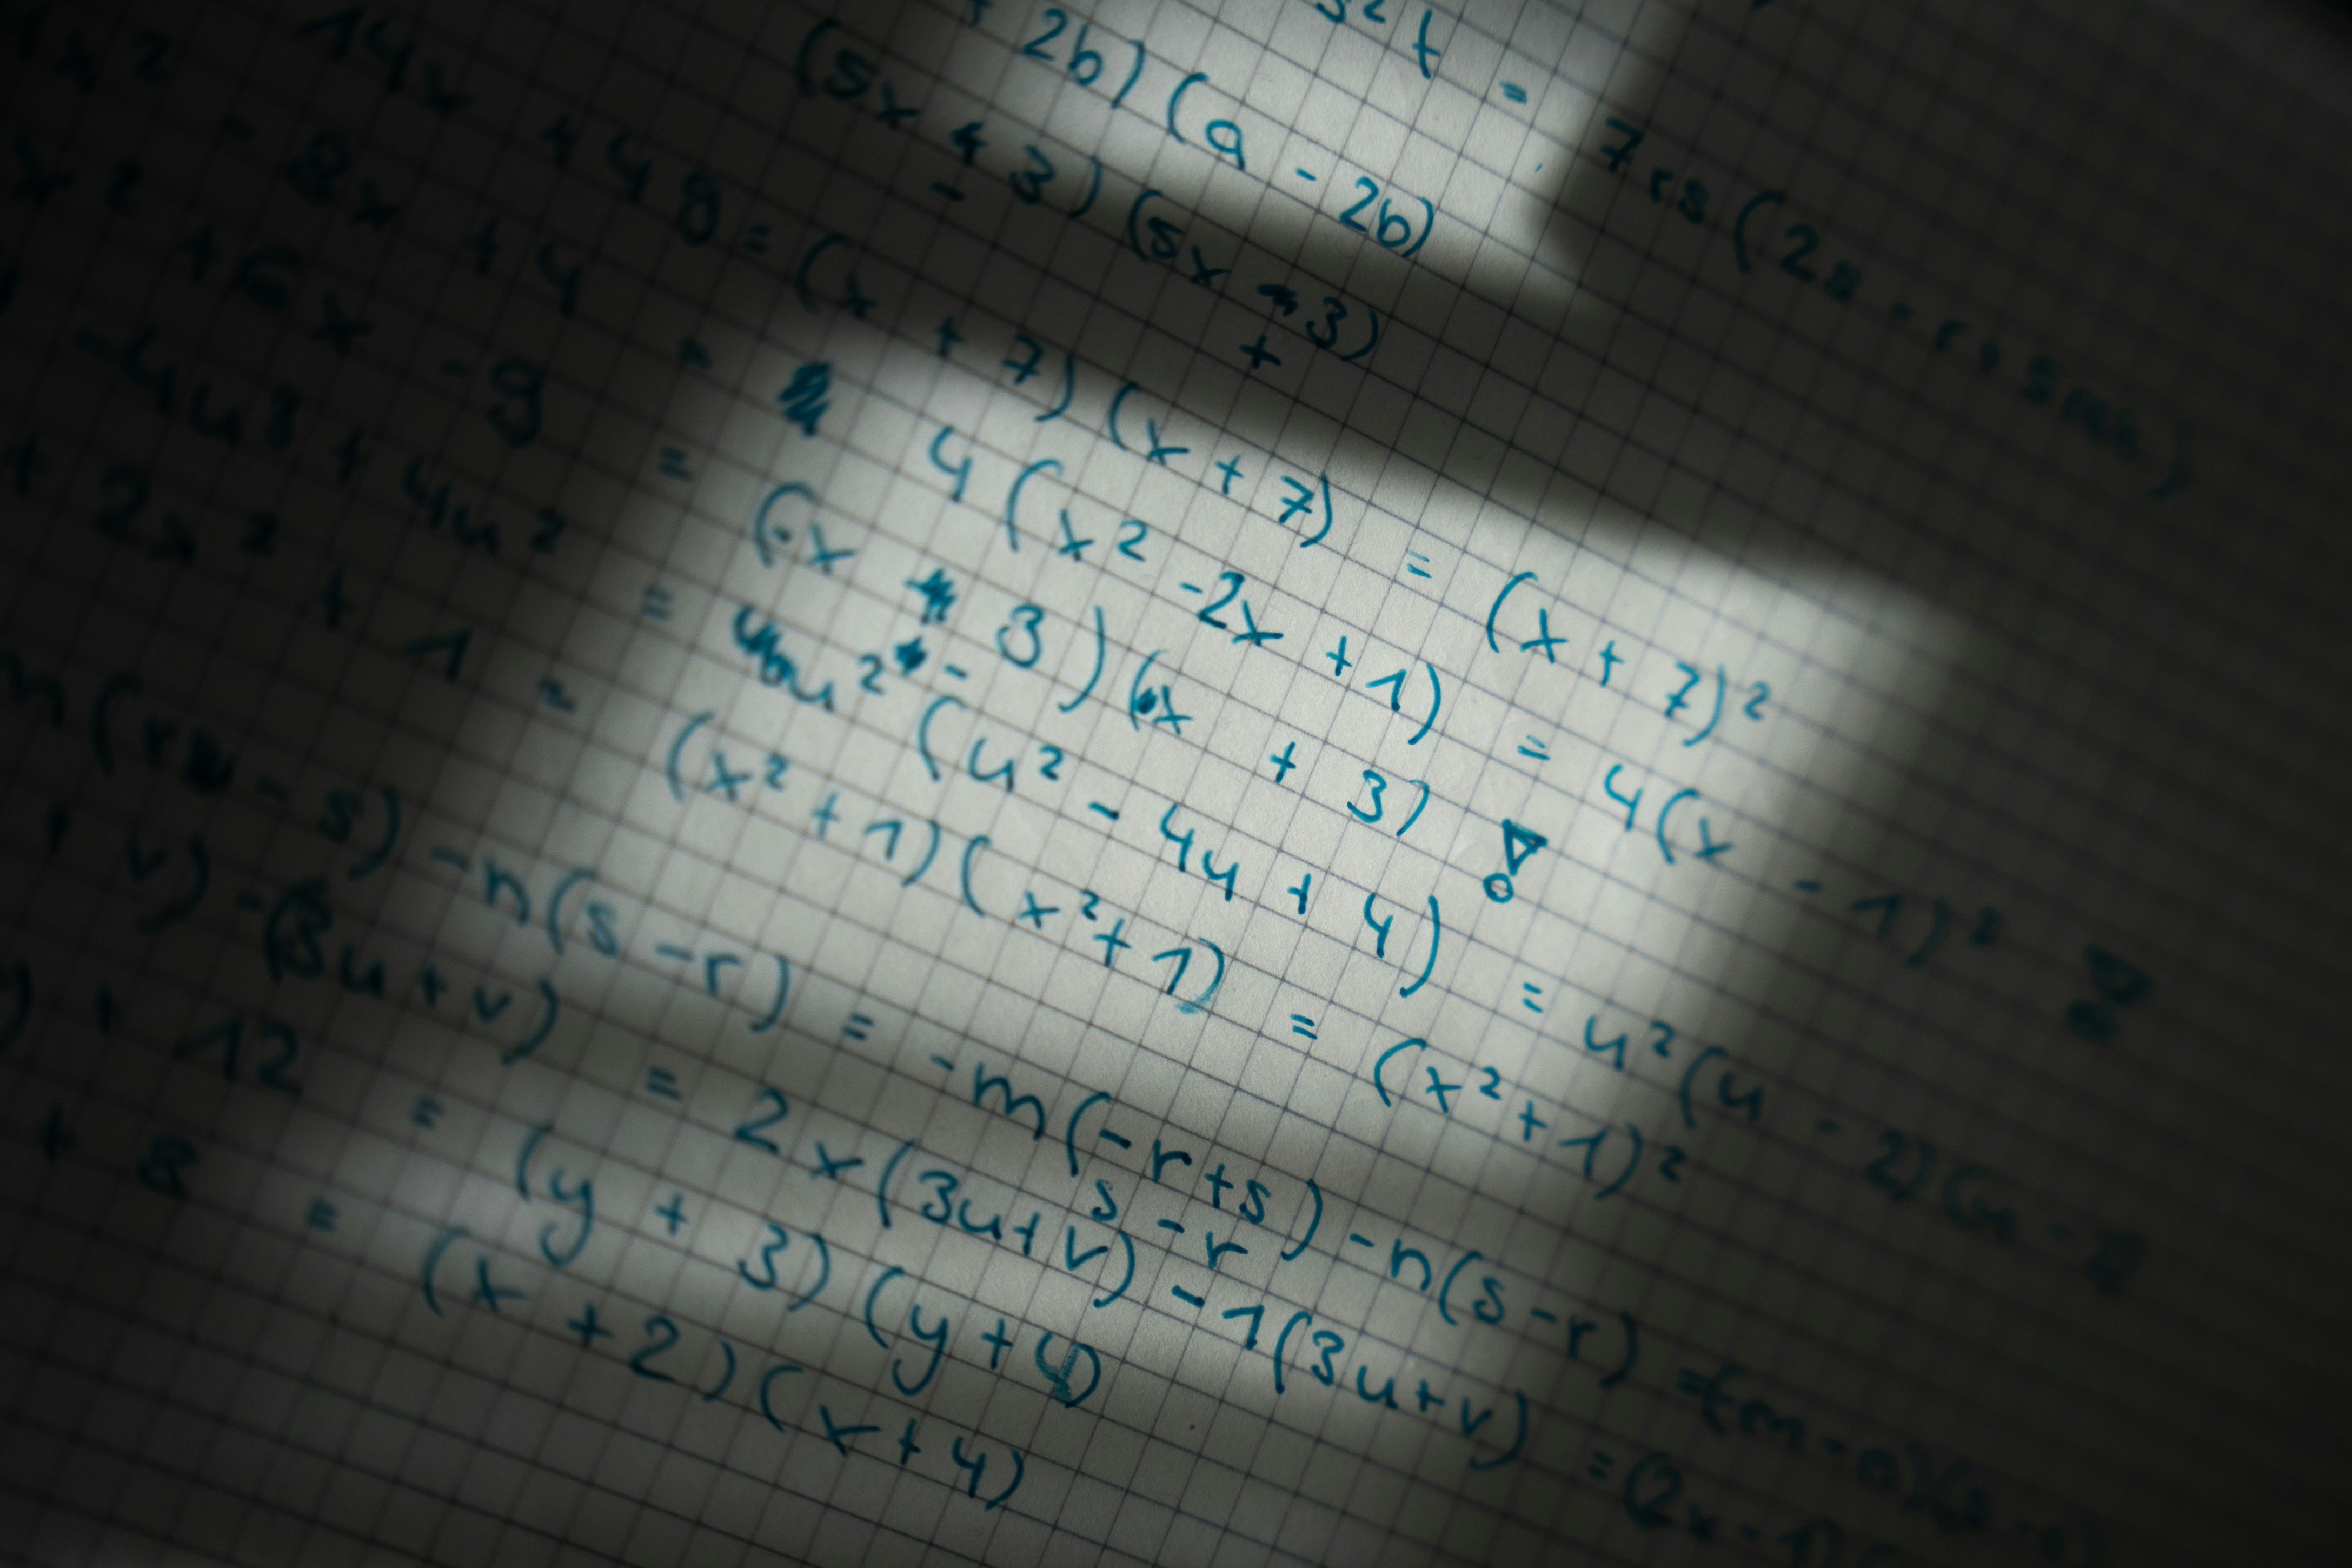 s²t = 7rs(2s - r +
2b)(a - 2b)
(5x 3)(5x 3)
- +
14x + 49 = (x + 7)(x + 7) = (x + 7)²
x² - 8x + 4 = 4(x² - 2x + 1) = 4(x - 1)²
+ 6x - 9 = (x 3)(x + 3)
- 4u³ + 4u² = u² - (u² - 4u + 4) = u²(u - 2)(u - 2
+ 2x² + 1 = (x² + 1)(x² + 1) = (x² + 1)²
m(r - s) - n(s - r) = -m(-r + s) - n(s - r) = (m - n)(s
s - r
v) - (3u + v) = 2x(3u + v) - 1(3u + v) = (2x - 1)(
+ 12 = (y + 3)(y + 4)
+ 8 = (x + 2)(x + 4)